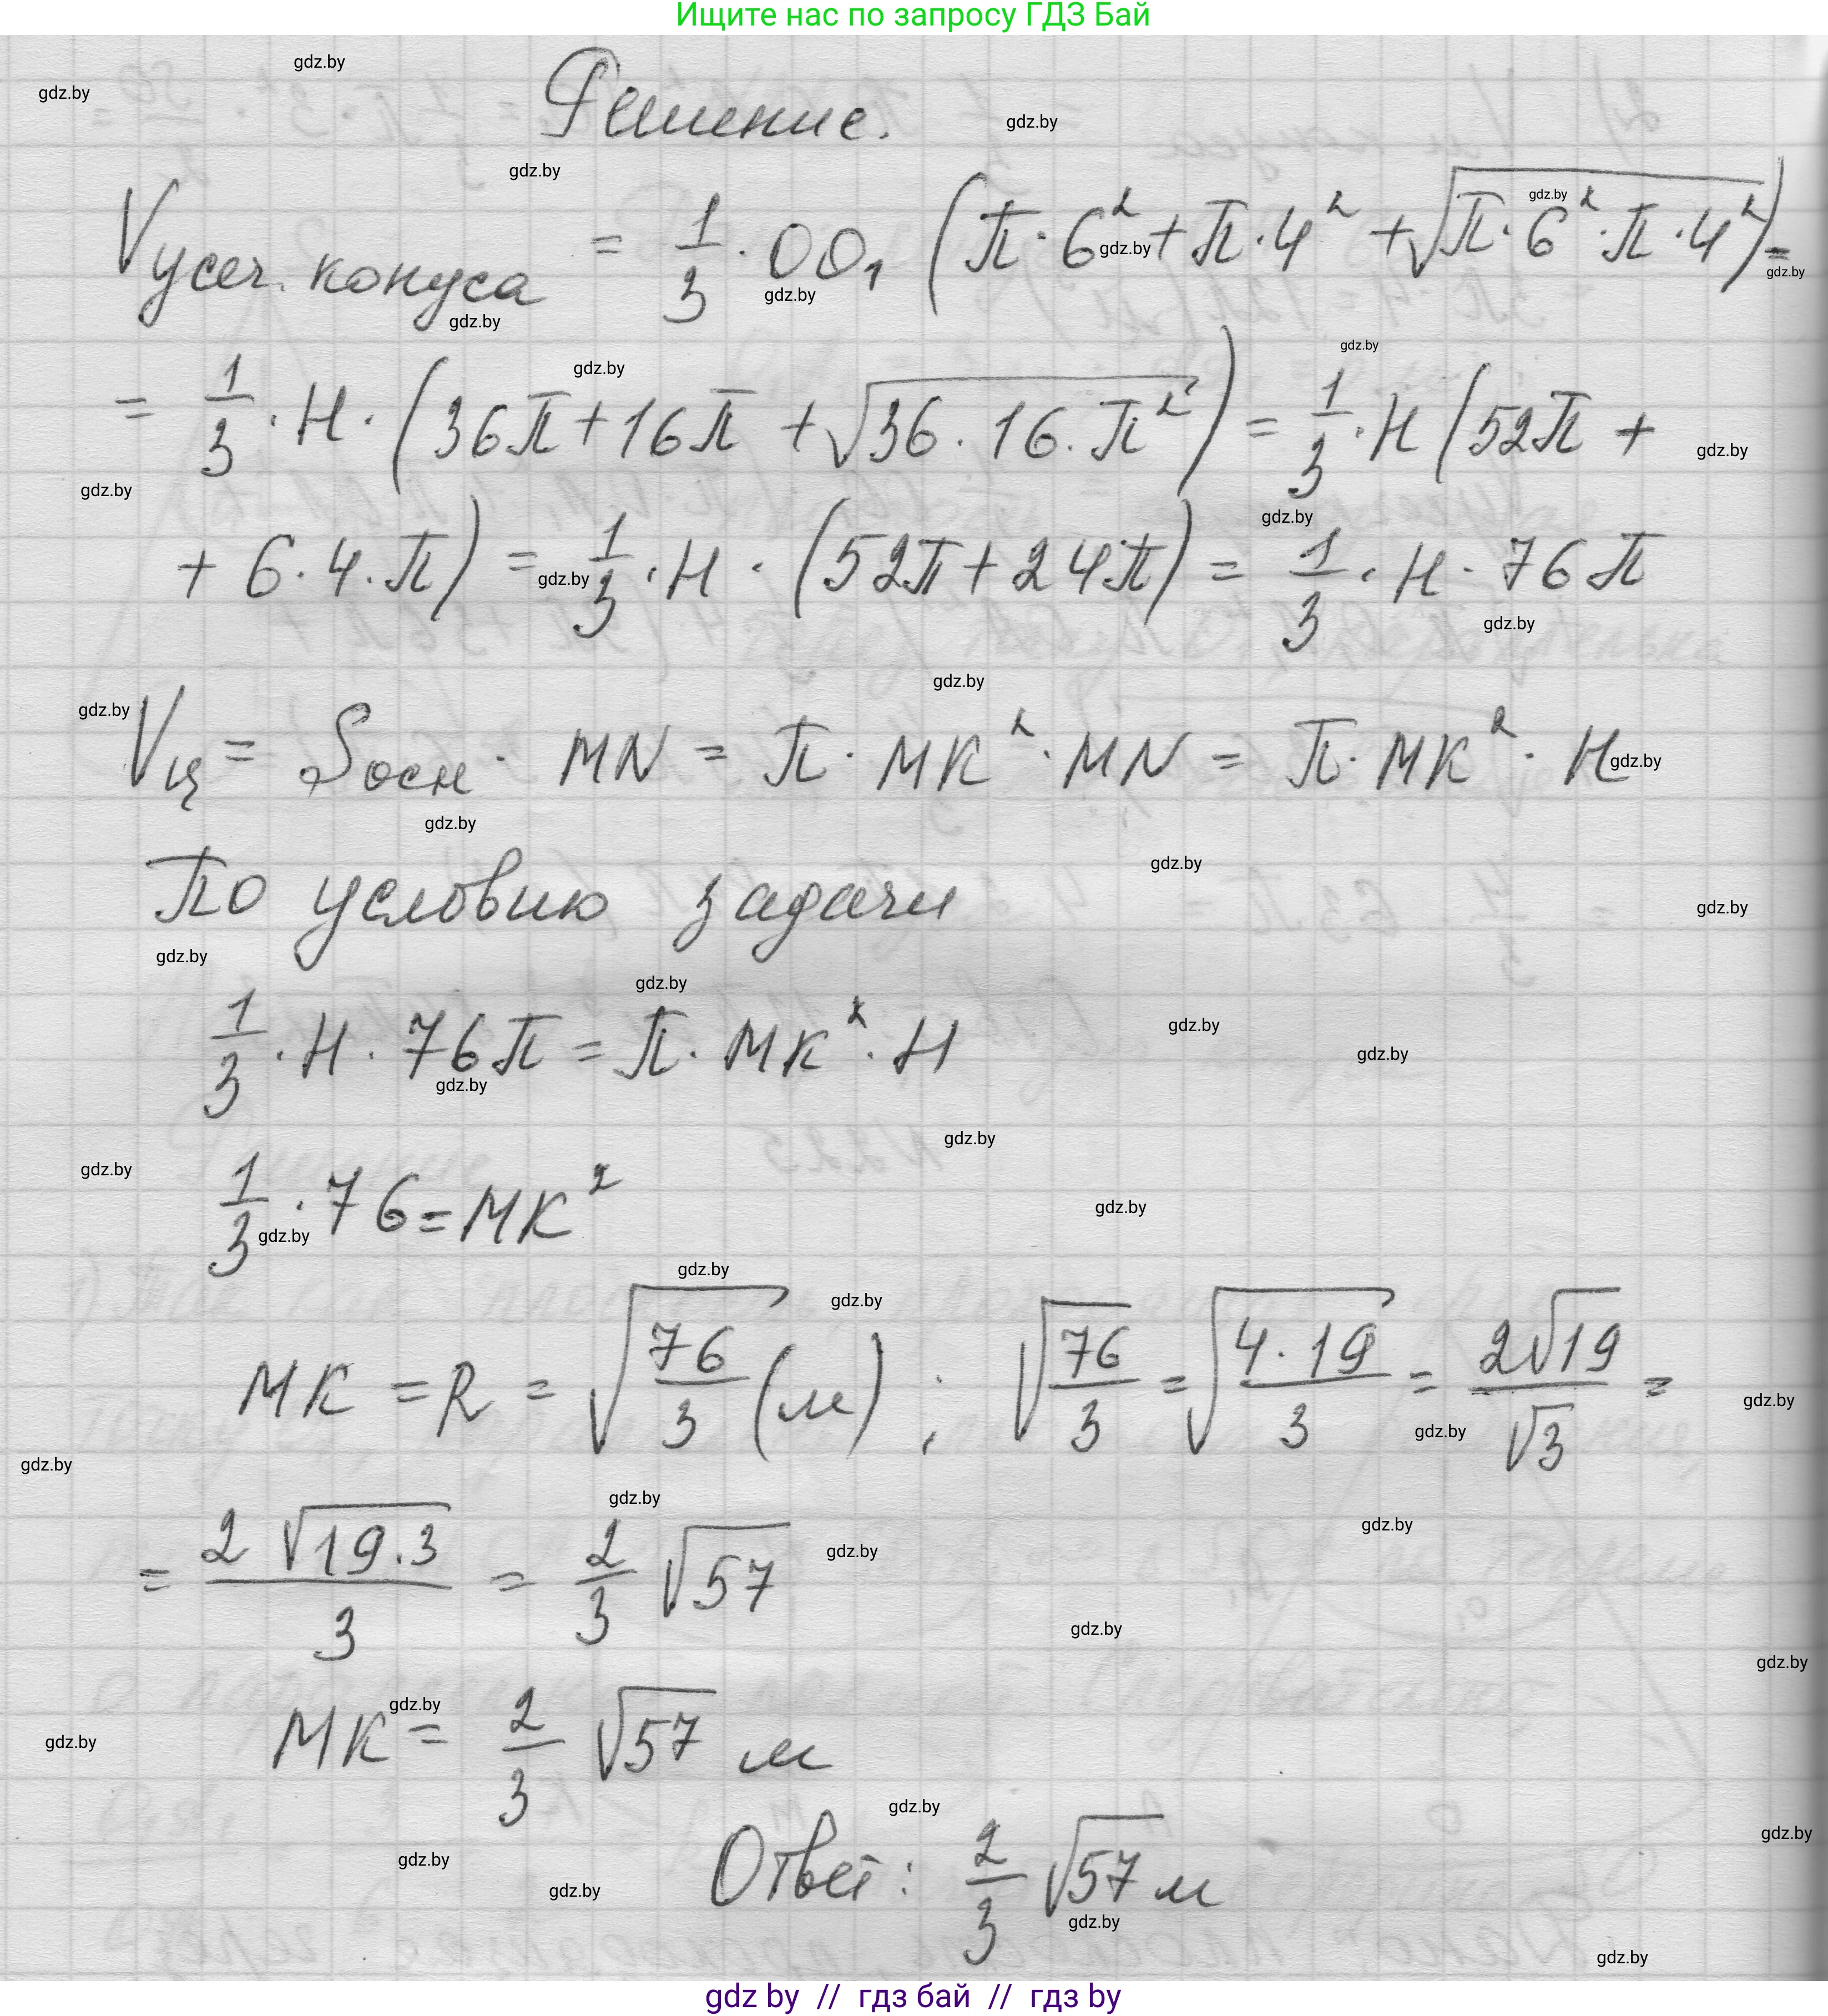 Ищите нас по запросу ГДЗ Бай
Решение.
Vусеч. конуса = 1/3 · OO₁ (π · 6² + π · 4² + √(π · 6² · π · 4²)) =
= 1/3 · H · (36π + 16π + √(36 · 16 · π²)) = 1/3 · H (52π +
+ 6 · 4 · π) = 1/3 · H · (52π + 24π) = 1/3 · H · 76π
Vц = Sосн · MN = π · MK² · MN = π · MK² · H
По условию задачи
1/3 · H · 76π = π · MK² · H
1/3 · 76 = MK²
MK = R = √(76/3) (м) ; √(76/3) = √(4 · 19/3) = 2√19/√3 =
= 2√(19·3)/3 = 2/3 √57
MK = 2/3 √57 м
Ответ: 2/3 √57 м
gdz by // гдз бай // гдз by